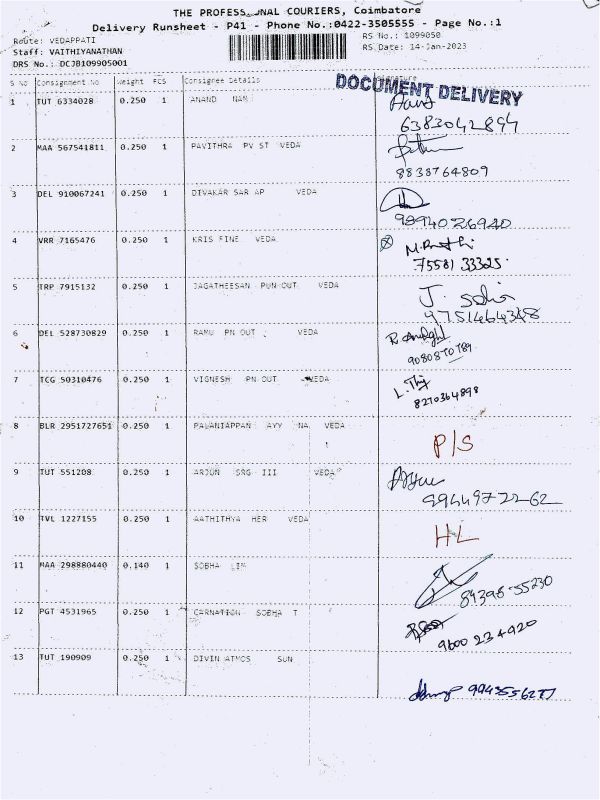 THE PROFESS NAL COURIERS, Coimbatore
Delivery Runsheet - P41 - Phone No.:0422-3505555 - Page No.:1
Route: VEDAPPATI RS No.: 1099050
Staff: VAITHIYANATHAN RS Date: 14-Jan-2023
DRS No.: DCJB109905001
S No Consignment No Weight PCS Consignee Details Signature
DOCUMENT DELIVERY
1 TUT 6334028 0.250 1 ANAND NAM
6383042894
2 MAA 567541811 0.250 1 PAVITHRA PV ST VEDA
8838764809
3 DEL 910067241 0.250 1 DIVAKAR SAR AP VEDA
9894026940
4 VRR 7165476 0.250 1 KRIS FINE VEDA
75581 33325
5 TRP 7915132 0.250 1 JAGATHEESAN PUN OUT VEDA
9751464348
6 DEL 528730829 0.250 1 RAMU PN OUT VEDA
7 TCG 50310476 0.250 1 VIGNESH PN OUT VEDA
8270364898
8 BLR 2951727651 0.250 1 PALANIAPPAN AYY NA VEDA
P/S
9 TUT 551208 0.250 1 ARJUN SRG III VEDA
10 TVL 1227155 0.250 1 AATHITHYA HER VEDA
HL
11 MAA 298880440 0.140 1 SOBHA LIM
84398-55230
12 PGT 4531965 0.250 1 CARNATION SOBHA T
9600 234920
13 TUT 190909 0.250 1 DIVIN ATMOS SUN